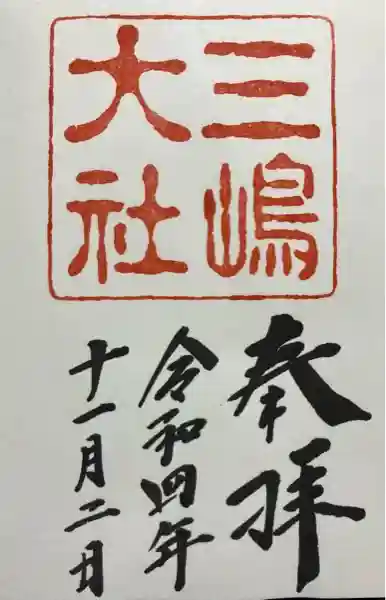 三嶋
大社
奉拝
令和四年
十一月二日